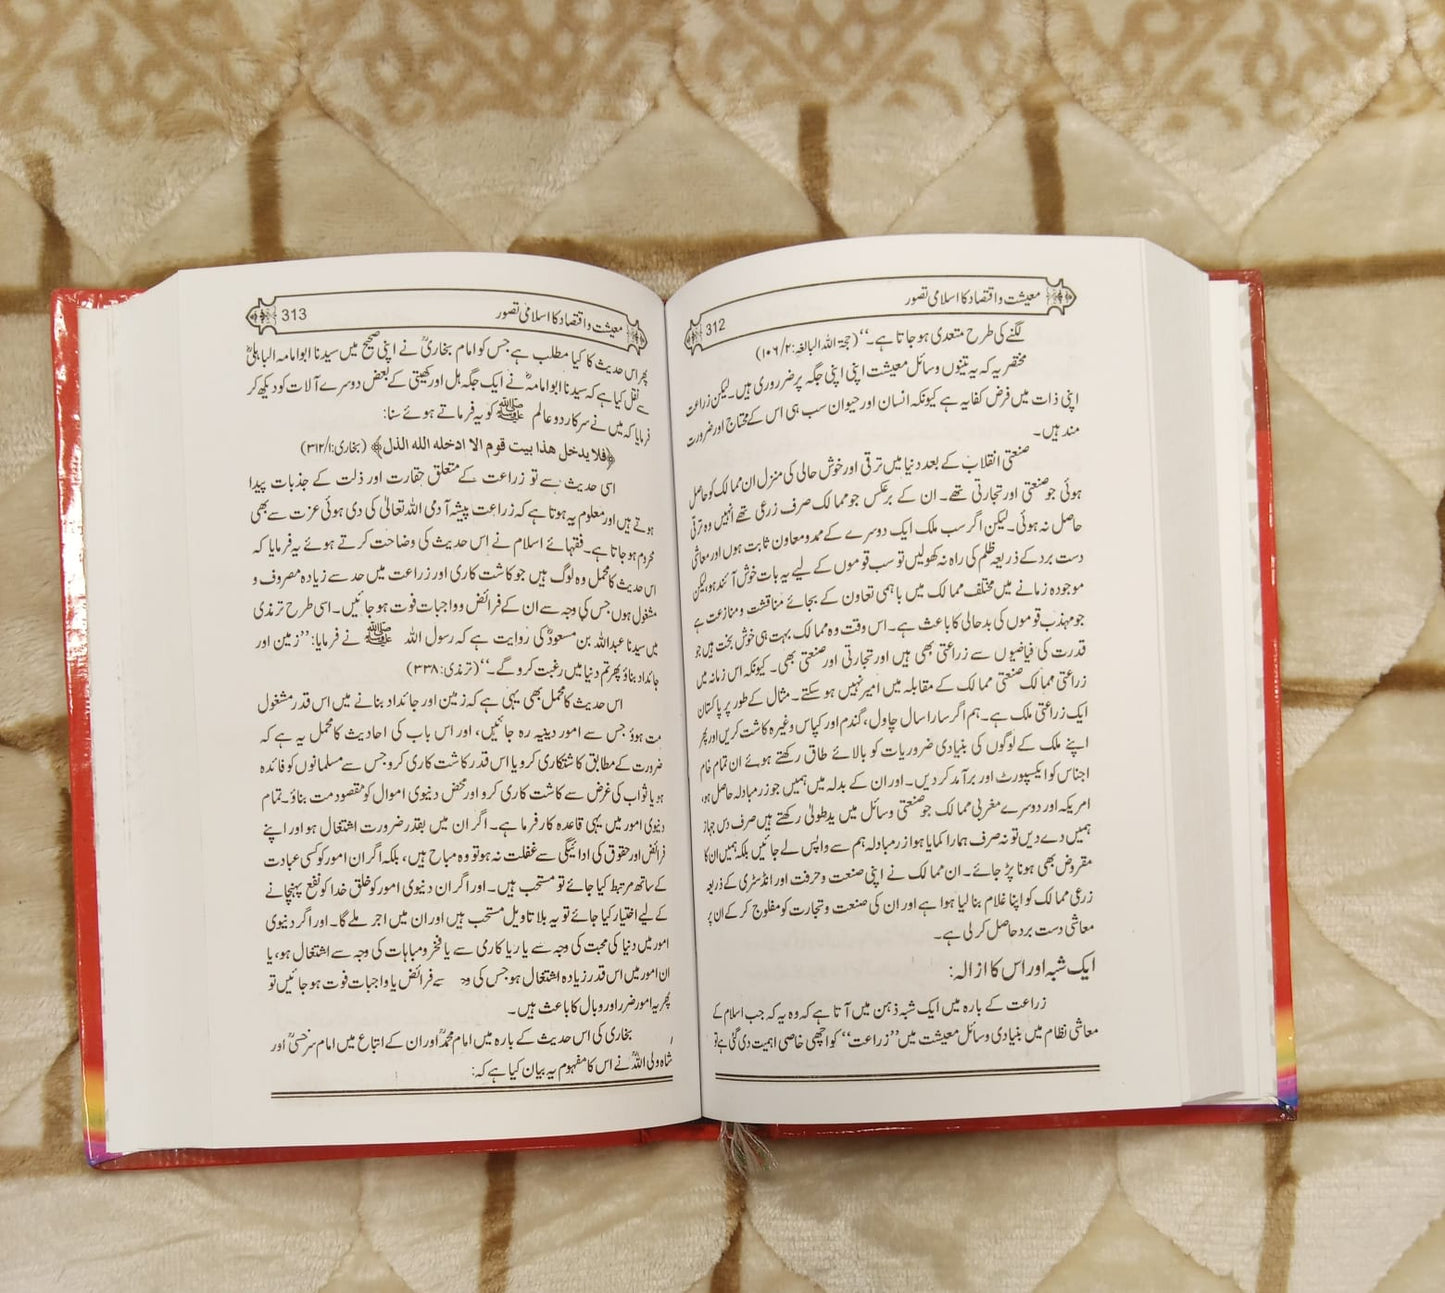 معیشت و اقتصاد کا اسلامی تصور
312
لگنے کی طرح متعدی ہو جاتا ہے۔‘‘ (حجۃ اللہ البالغہ: ۲/۱۰۶)
مختصر یہ کہ یہ تینوں وسائل معیشت اپنی اپنی جگہ پر ضروری ہیں۔ لیکن زراعت
اپنی ذات میں فرض کفایہ ہے کیونکہ انسان اور حیوان سب ہی اس کے محتاج اور ضرورت
مند ہیں۔
صنعتی انقلاب کے بعد دنیا میں ترقی اور خوش حالی کی منزل ان ممالک کو حاصل
ہوئی جو صنعتی اور تجارتی تھے۔ ان کے برعکس جو ممالک صرف زرعی تھے انہیں وہ ترقی
حاصل نہ ہوئی۔ لیکن اگر سب ملک ایک دوسرے کے ممد و معاون ثابت ہوں اور معاشی
دست برد کے ذریعہ ظلم کی راہ نہ کھولیں تو سب قوموں کے لیے یہ بات خوش آئند ہو، لیکن
موجودہ زمانے میں مختلف ممالک میں باہمی تعاون کے بجائے مناقشت و منازعت ہے
جو مہذب قوموں کی بدحالی کا باعث ہے۔ اس وقت وہ ممالک بہت ہی خوش بخت ہیں جو
قدرت کی فیاضیوں سے زراعتی بھی ہیں اور تجارتی اور صنعتی بھی۔ کیونکہ اس زمانہ میں
زراعتی ممالک صنعتی ممالک کے مقابلہ میں امیر نہیں ہو سکتے۔ مثال کے طور پر پاکستان
ایک زراعتی ملک ہے۔ ہم اگر سارا سال چاول، گندم اور کپاس وغیرہ کاشت کریں اور پھر
اپنے ملک کے لوگوں کی بنیادی ضروریات کو بالائے طاق رکھتے ہوئے ان تمام خام
اجناس کو ایکسپورٹ اور برآمد کر دیں۔ اور ان کے بدلہ میں ہمیں جو زرمبادلہ حاصل ہو،
امریکہ اور دوسرے مغربی ممالک جو صنعتی وسائل میں یدطولیٰ رکھتے ہیں صرف دس جہاز
ہمیں دے دیں تو نہ صرف ہمارا کمایا ہوا زرمبادلہ ہم سے واپس لے جائیں بلکہ ہمیں ان کا
مقروض بھی ہونا پڑ جائے۔ ان ممالک نے اپنی صنعت و حرفت اور انڈسٹری کے ذریعہ
زرعی ممالک کو اپنا غلام بنا لیا ہوا ہے اور ان کی صنعت و تجارت کو مفلوج کر کے ان پر
معاشی دست برد حاصل کر لی ہے۔
ایک شبہ اور اس کا ازالہ:
زراعت کے بارہ میں ایک شبہ ذہن میں آتا ہے کہ وہ یہ کہ جب اسلام کے
معاشی نظام میں بنیادی وسائل معیشت میں ’’زراعت‘‘ کو اچھی خاصی اہمیت دی گئی ہے تو
معیشت و اقتصاد کا اسلامی تصور
313
پھر اس حدیث کا کیا مطلب ہے؛ جس کو امام بخاریؒ نے اپنی صحیح میں سیدنا ابوامامہ الباہلیؓ
سے نقل کیا ہے کہ سیدنا ابوامامہؓ نے ایک جگہ ہل اور کھیتی کے بعض دوسرے آلات کو دیکھ کر
فرمایا کہ میں نے سرکار دو عالم ﷺ کو یہ فرماتے ہوئے سنا:
﴿فلا یدخل ھذا بیت قوم الا ادخلہ اللہ الذل﴾ (بخاری: ۱/۳۱۲)
اسی حدیث سے تو زراعت کے متعلق حقارت اور ذلت کے جذبات پیدا
ہوتے ہیں اور معلوم یہ ہوتا ہے کہ زراعت پیشہ آدمی اللہ تعالیٰ کی دی ہوئی عزت سے بھی
محروم ہو جاتا ہے۔ فقہائے اسلام نے اس حدیث کی وضاحت کرتے ہوئے یہ فرمایا کہ
اس حدیث کا محمل وہ لوگ ہیں جو کاشت کاری اور زراعت میں حد سے زیادہ مصروف و
مشغول ہوں جس کی وجہ سے ان کے فرائض و واجبات فوت ہو جائیں۔ اسی طرح ترمذی
میں سیدنا عبداللہ بن مسعودؓ کی روایت ہے کہ رسول اللہ ﷺ نے فرمایا: ’’زمین اور
جائداد بناؤ پھر تم دنیا میں رغبت کرو گے۔‘‘ (ترمذی: ۳۳۸)
اس حدیث کا محمل بھی یہی ہے کہ زمین اور جائداد بنانے میں اس قدر مشغول
مت ہوؤ جس سے امور دینیہ رہ جائیں، اور اس باب کی احادیث کا محمل یہ ہے کہ
ضرورت کے مطابق کاشتکاری کرو یا اس قدر کاشت کاری کرو جس سے مسلمانوں کو فائدہ
ہو یا ثواب کی غرض سے کاشت کاری کرو اور محض دنیوی اموال کو مقصود مت بناؤ۔ تمام
دنیوی امور میں یہی قاعدہ کار فرما ہے۔ اگر ان میں بقدر ضرورت اشتغال ہو اور اپنے
فرائض اور حقوق کی ادائیگی سے غفلت نہ ہو تو وہ مباح ہیں، بلکہ اگر ان امور کو کسی عبادت
کے ساتھ مرتبط کیا جائے تو مستحب ہیں۔ اور اگر ان دنیوی امور کو خلق خدا کو نفع پہنچانے
کے لیے اختیار کیا جائے تو یہ بلا تاویل مستحب ہیں اور ان میں اجر ملے گا۔ اور اگر دنیوی
امور میں دنیا کی محبت کی وجہ سے یا ریا کاری سے یا فخر و مباہات کی وجہ سے اشتغال ہو، یا
ان امور میں اس قدر زیادہ اشتغال ہو، جس کی وجہ سے فرائض یا واجبات فوت ہو جائیں تو
پھر یہ امور ضرر اور وبال کا باعث ہیں۔
بخاری کی اس حدیث کے بارہ میں امام محمدؒ اور ان کے اتباع میں امام سرخسیؒ اور
شاہ ولی اللہؒ نے اس کا مفہوم یہ بیان کیا ہے کہ: